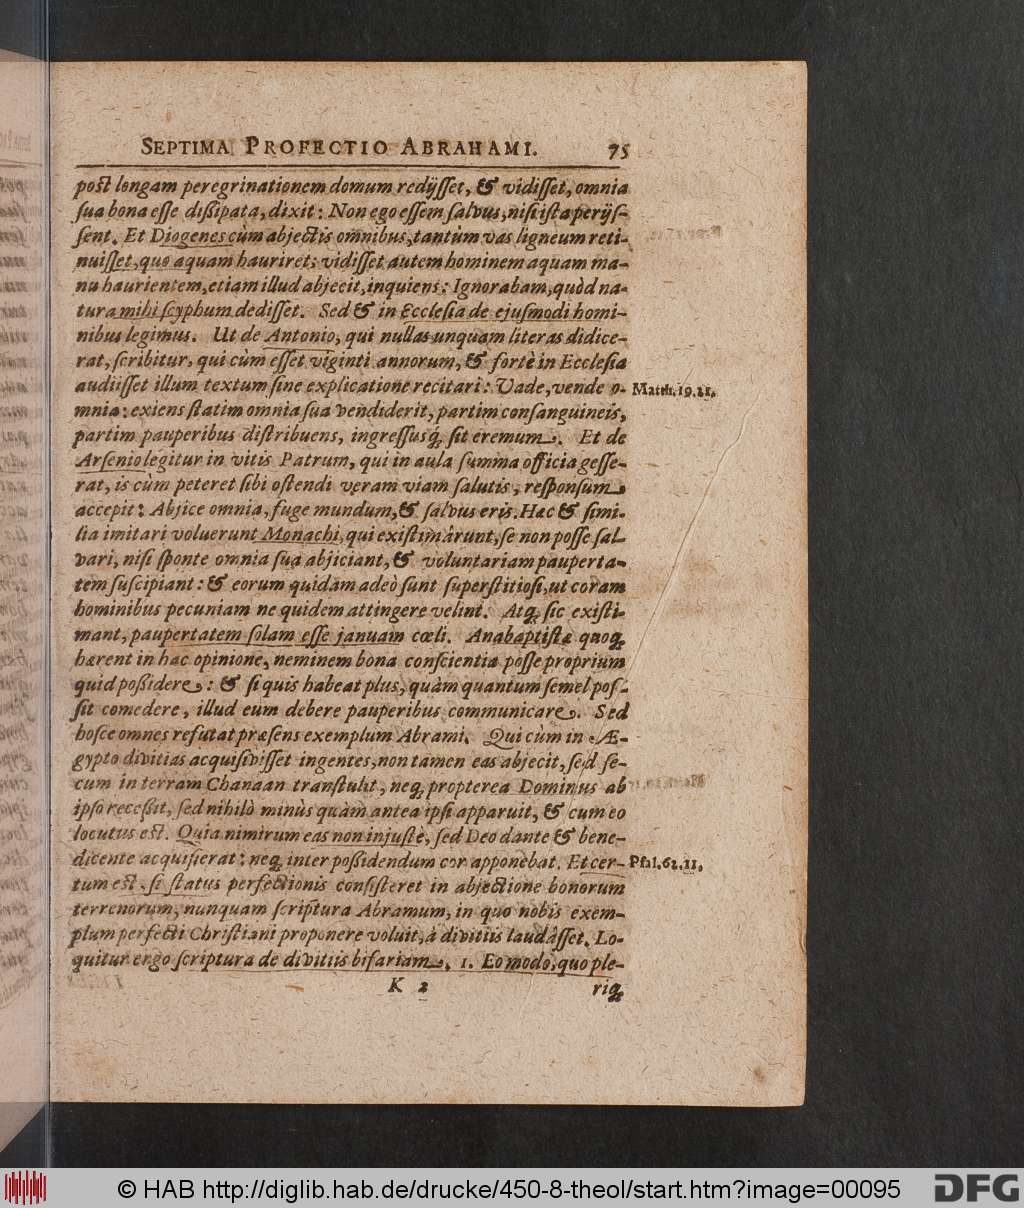 SEPTIMA PROFECTIO ABRAHAMI. 75
post longam peregrinationem domum redijſſet, & vidiſſet, omnia
ſua bona eſſe diſſipata, dixit: Non ego eſſem ſalvus, niſi iſta perijſ-
ſent. Et Diogenes cùm abjectis omnibus, tantùm vas ligneum reti-
nuiſſet, quo aquam hauriret; vidiſſet autem hominem aquam ma-
nu haurientem, etiam illud abjecit, inquiens: Ignorabam, quòd na-
tura mihi ſcyphum dediſſet. Sed & in Eccleſia de ejuſmodi homi-
nibus legimus. Ut de Antonio, qui nullas unquam literas didice-
rat, ſcribitur, qui cùm eſſet viginti annorum, & fortè in Eccleſia
audiiſſet illum textum ſine explicatione recitari: Vade, vende o-
Matth. 19. 21.
mnia: exiens ſtatim omnia ſua vendiderit, partim conſanguineis,
partim pauperibus diſtribuens, ingreſſusq́; ſit eremum. Et de
Arſenio legitur in vitis Patrum, qui in aula ſumma officia geſſe-
rat, is cùm peteret ſibi oſtendi veram viam ſalutis, reſponſum
accepit: Abjice omnia, fuge mundum, & ſalvus eris. Hæc & ſimi-
lia imitari voluerunt Monachi, qui exiſtimârunt, ſe non poſſe ſal-
vari, niſi ſponte omnia ſua abjiciant, & voluntariam pauperta-
tem ſuſcipiant: & eorum quidam adeò ſunt ſuperſtitioſi, ut coram
hominibus pecuniam ne quidem attingere velint. Atq; ſic exiſti-
mant, paupertatem ſolam eſſe januam cœli. Anabaptiſtæ quoq;
hærent in hac opinione, neminem bona conſcientia poſſe proprium
quid poſſidere: & ſi quis habeat plus, quàm quantum ſemel poſ-
ſit comedere, illud eum debere pauperibus communicare. Sed
hoſce omnes refutat præſens exemplum Abrami. Qui cùm in Æ-
gypto divitias acquiſiviſſet ingentes, non tamen eas abjecit, ſed ſe-
cum in terram Chanaan tranſtulit, neq; propterea Dominus ab
ipſo receſſit, ſed nihilò minùs quàm antea ipſi apparuit, & cum eo
locutus eſt. Quia nimirum eas non injuſtè, ſed Deo dante & bene-
dicente acquiſierat: neq; inter poſſidendum cor apponebat. Et cer-
Pſal. 62. 11.
tum eſt, ſi ſtatus perfectionis conſiſteret in abjectione bonorum
terrenorum, nunquam ſcriptura Abramum, in quo nobis exem-
plum perfecti Chriſtiani proponere voluit, à divitiis laudâſſet. Lo-
quitur ergo ſcriptura de divitiis bifariam. 1. Eo modo, quo ple-
K 2 riq;
© HAB http://diglib.hab.de/drucke/450-8-theol/start.htm?image=00095
DFG